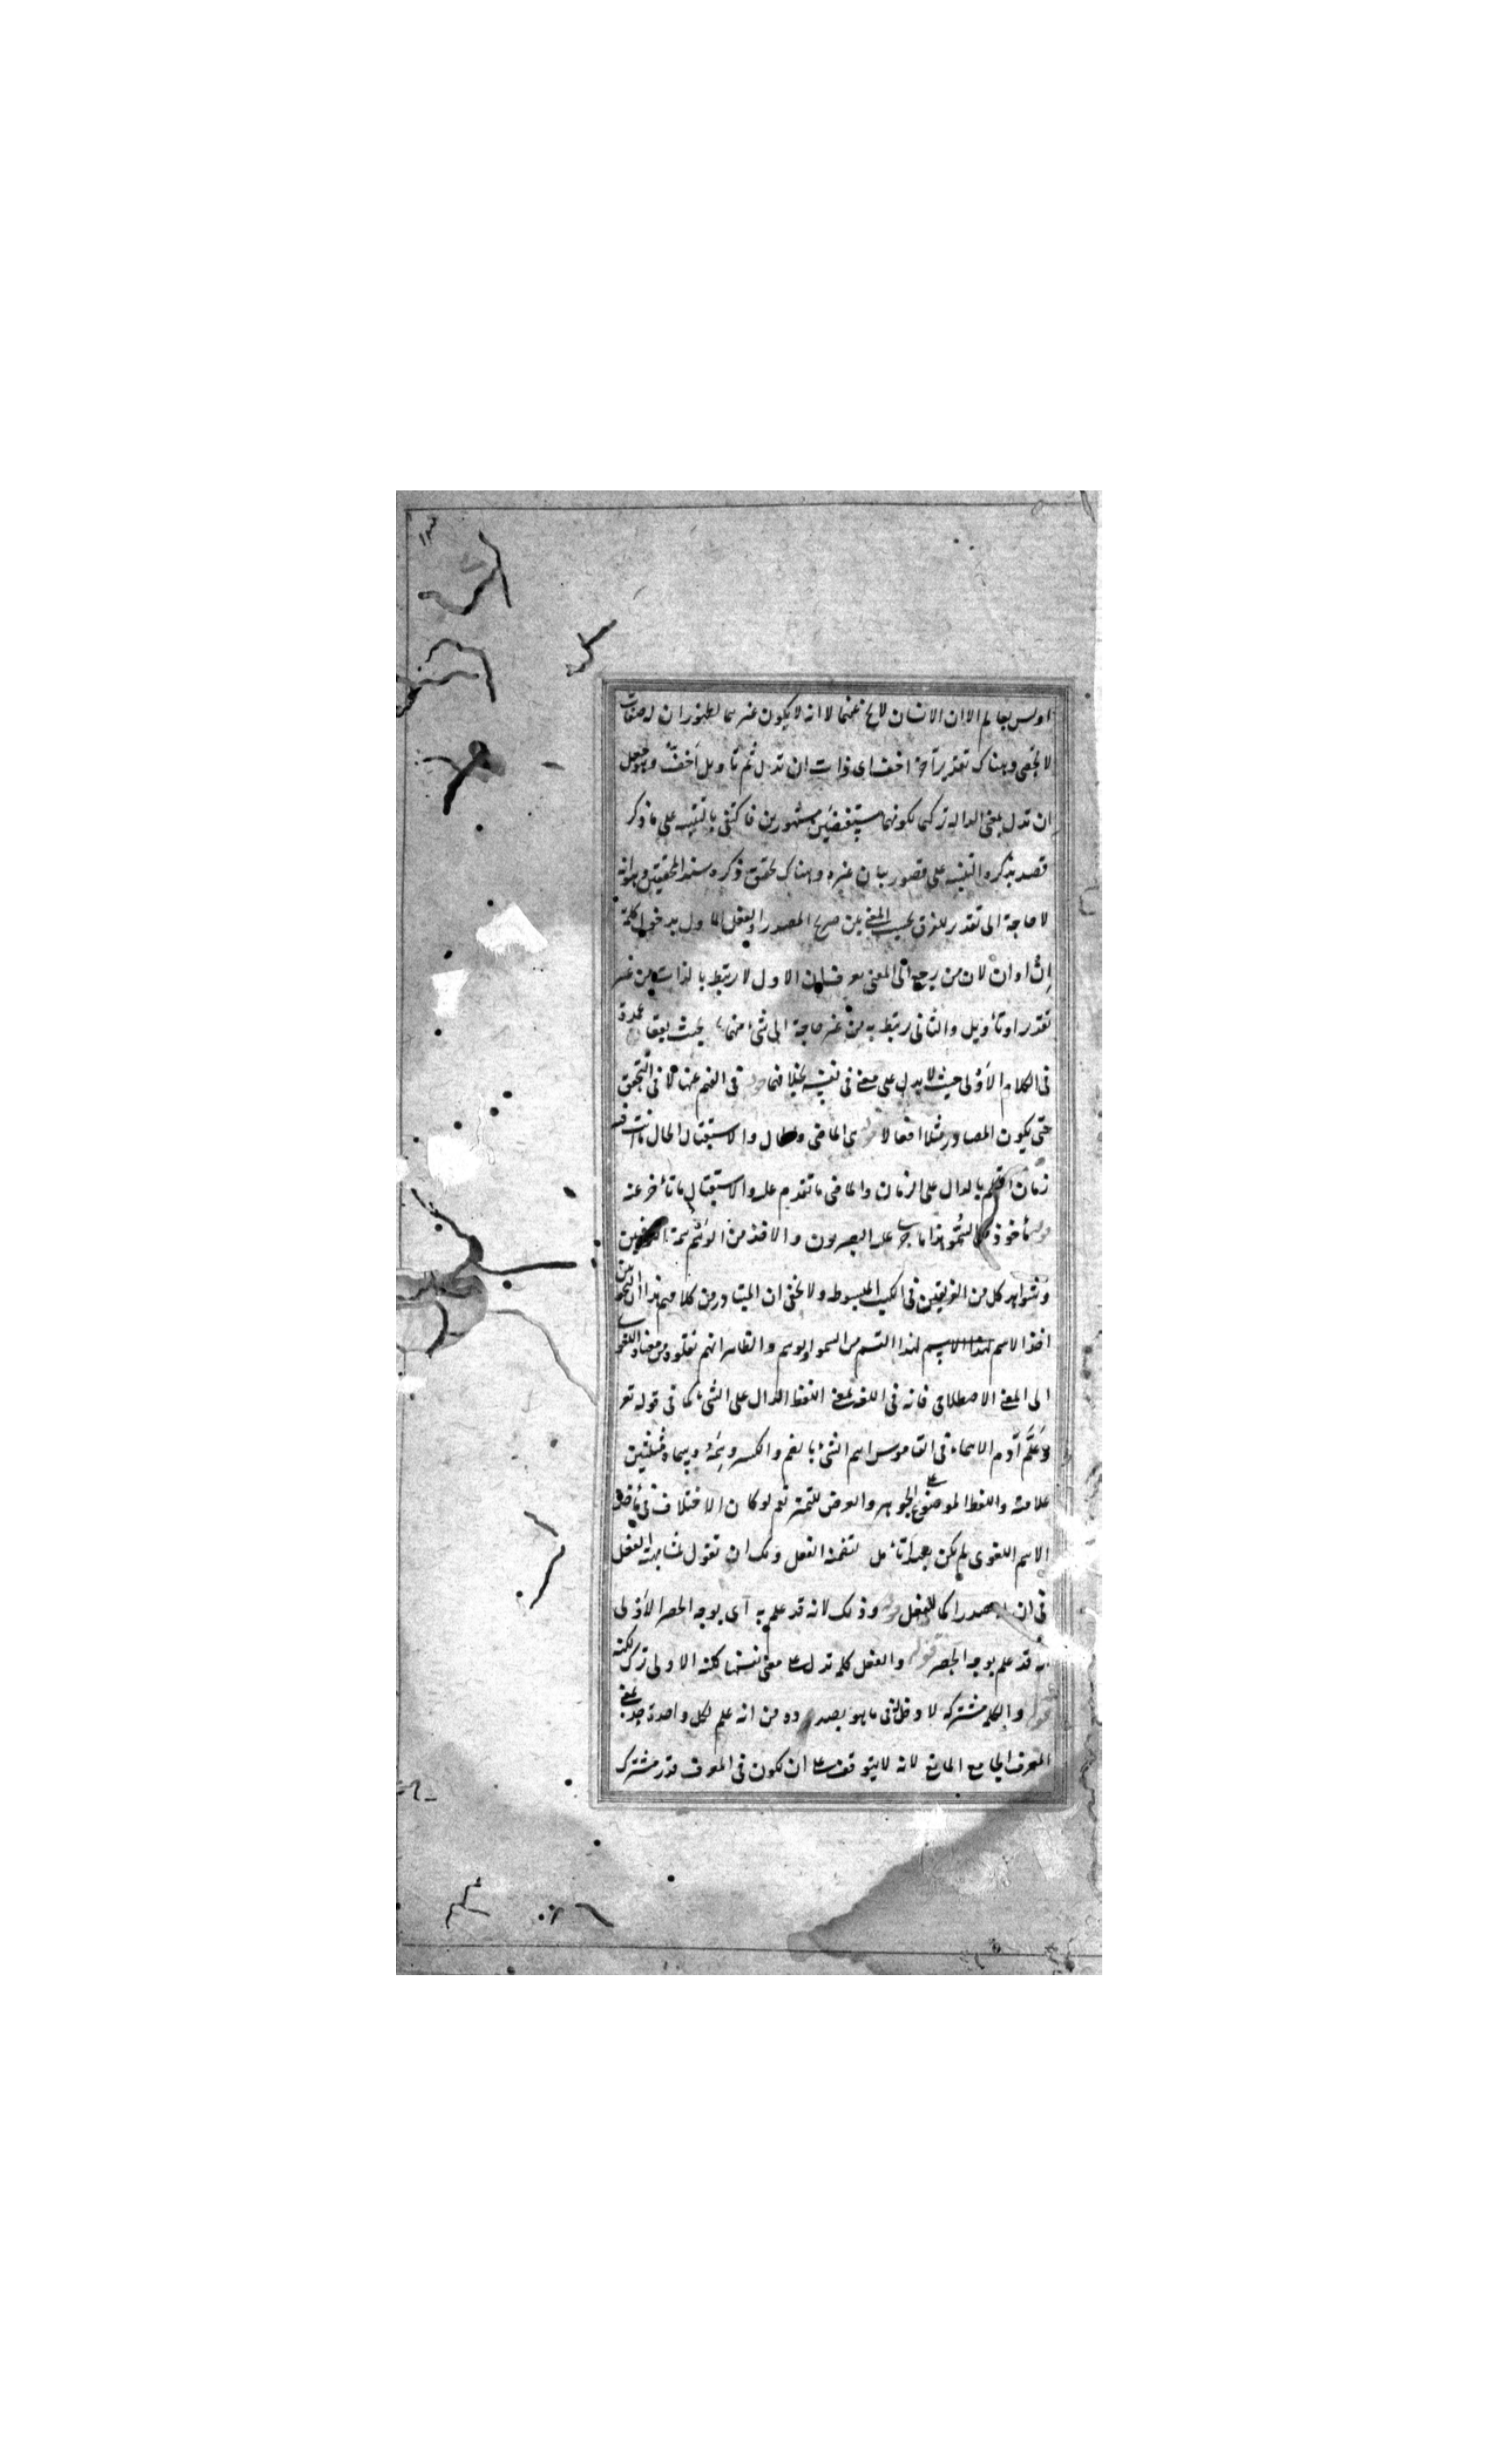 او ليس بعالم الا ان الانسان لا يخ عنهما لا انه لا يكون غيرهما لظهور ان له صفات
لا تحصى وهناك تقدير آخر اخف اى ذات ان تدل ثم تأويل اخف وهو جعل
ان تدل بمعنى الدالة تركهما لكونهما مستفيضين مشهورين فاكتفى بالتنبيه على ما ذكر
قصد بذكره التنبيه على قصور بيان غيره وهناك تحقيق ذكره سند المحققين وهو انه
لا حاجة الى تقدير للفرق بحسب المعنى بين صريح المصدر والفعل الماول بدخول كلمة
ان او ان لان من يرجع الى المعنى يعرف ان الاول لا يرتبط بالذات من غير
تقدير او تأويل والثانى يرتبط به من غير حاجة الى شئ منهما بحيث يقع عمدة
فى الكلام الاولى حيث لا يدل على معنى فى نفسه فى الفهم عنها لا فى التحقق
حتى يكون المصادر مثلا افعالا اى الماضى والحال والاستقبال الحال ما انت فيه
زمان التكلم بالدال على الزمان والماضى ما تقدم عليه والاستقبال ما تأخر عنه
قوله مأخوذ من السمو هذا ما جرى عليه البصريون والاخذ من الوسم سمة الكوفيين
وشواهد كل من الفريقين فى الكتب المبسوطه ولا يخفى ان المتبادر من كلامهم هذا ان النحويين
اخذ الاسم لهذا القسم من السمو او الوسم والظاهر انهم نقلوه من معناه اللغوى
الى المعنى الاصطلاحى فانه فى اللغة بمعنى اللفظ الدال على الشئ كما فى قوله تع
وعلم آدم الاسماء فى القاموس اسم الشئ بالضم والكسر وسمه وسماه مثلثين
علامته واللفظ الموضوع على الجوهر والعرض للتميز نعم لو كان الاختلاف فى مأخذ
الاسم اللغوى لم يكن بعيدا تأمل لتضمنه الفعل ولك ان تقول لمشابهته الفعل
فى ان مصدرا كما للفعل قوله وذلك لانه قد علم به اى بوجه الحصر الاولى
انه قد علم بوجه الحصر قوله والفعل كلمة تدل على معنى نفسها لكنه الاولى ترك لكنه
قوله والكلمة مشتركه لا دخل له فى ما هو بصدده من انه علم لكل واحدة حد بمعنى
المعرف الجامع المانع لانه لا يتوقف على ان يكون فى المعرف قدر مشترك